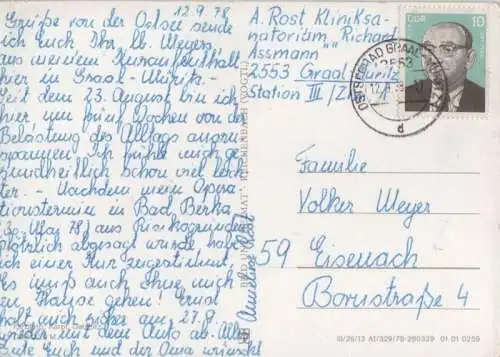 12.9.78
Grüße von der Ostsee sende
ich Euch Ihr lb. Meyers
aus meinem Kuraufenthalt
hier in Graal-Müritz.
Seit dem 23. August bin ich
hier um fünf Wochen von der
Belastung des Alltags auszu-
spannen. Ich fühle mich ge-
sundheitlich schon viel leich-
ter. - Nachdem mein Opera-
tionstermin in Bad Berka
30. Mai 78 aus Risikogründen
plötzlich abgesagt wurde, habe
ich einer Kur zugestimmt.
Es muß auch ohne mich
zu Hause gehen! Ernst
holt mich sicher am 27.9.
wieder mit dem Auto ab. Alles
Gute Euch und der Oma wünscht
Anneliese Rost
A. Rost Kliniksa-
natorium "Richart
Assmann"
2553 Graal-Müritz
Station III /
DDR
10
OSTSEEBAD GRAAL-MÜRITZ
2553
d
Familie
Volker Meyer
59 Eisenach
Bornstraße 4
BILD UND HEIMAT REICHENBACH (VOGTL)
III/26/13 A1/329/78-280329 01 01 0259